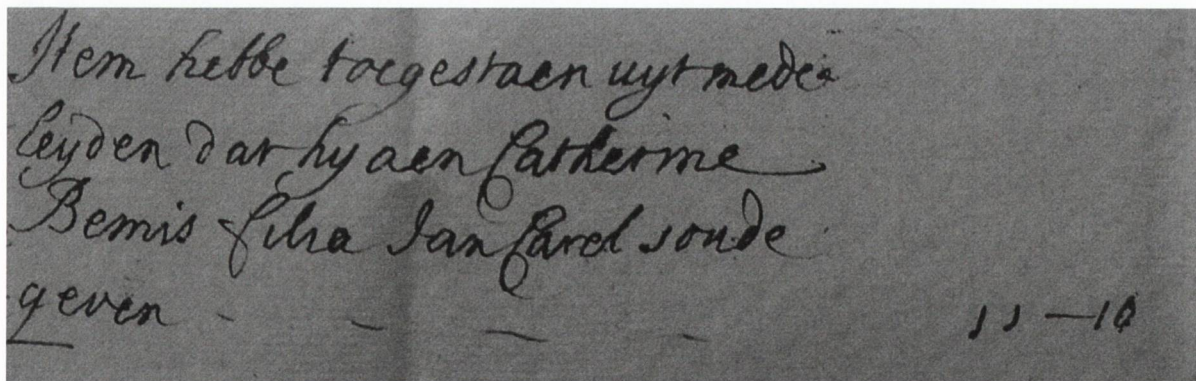 Item hebbe toegestaen uyt mede
leyden dat hy aen Catherine
Bemis filia Jan Carel soude
geven - - - - 11 - 10